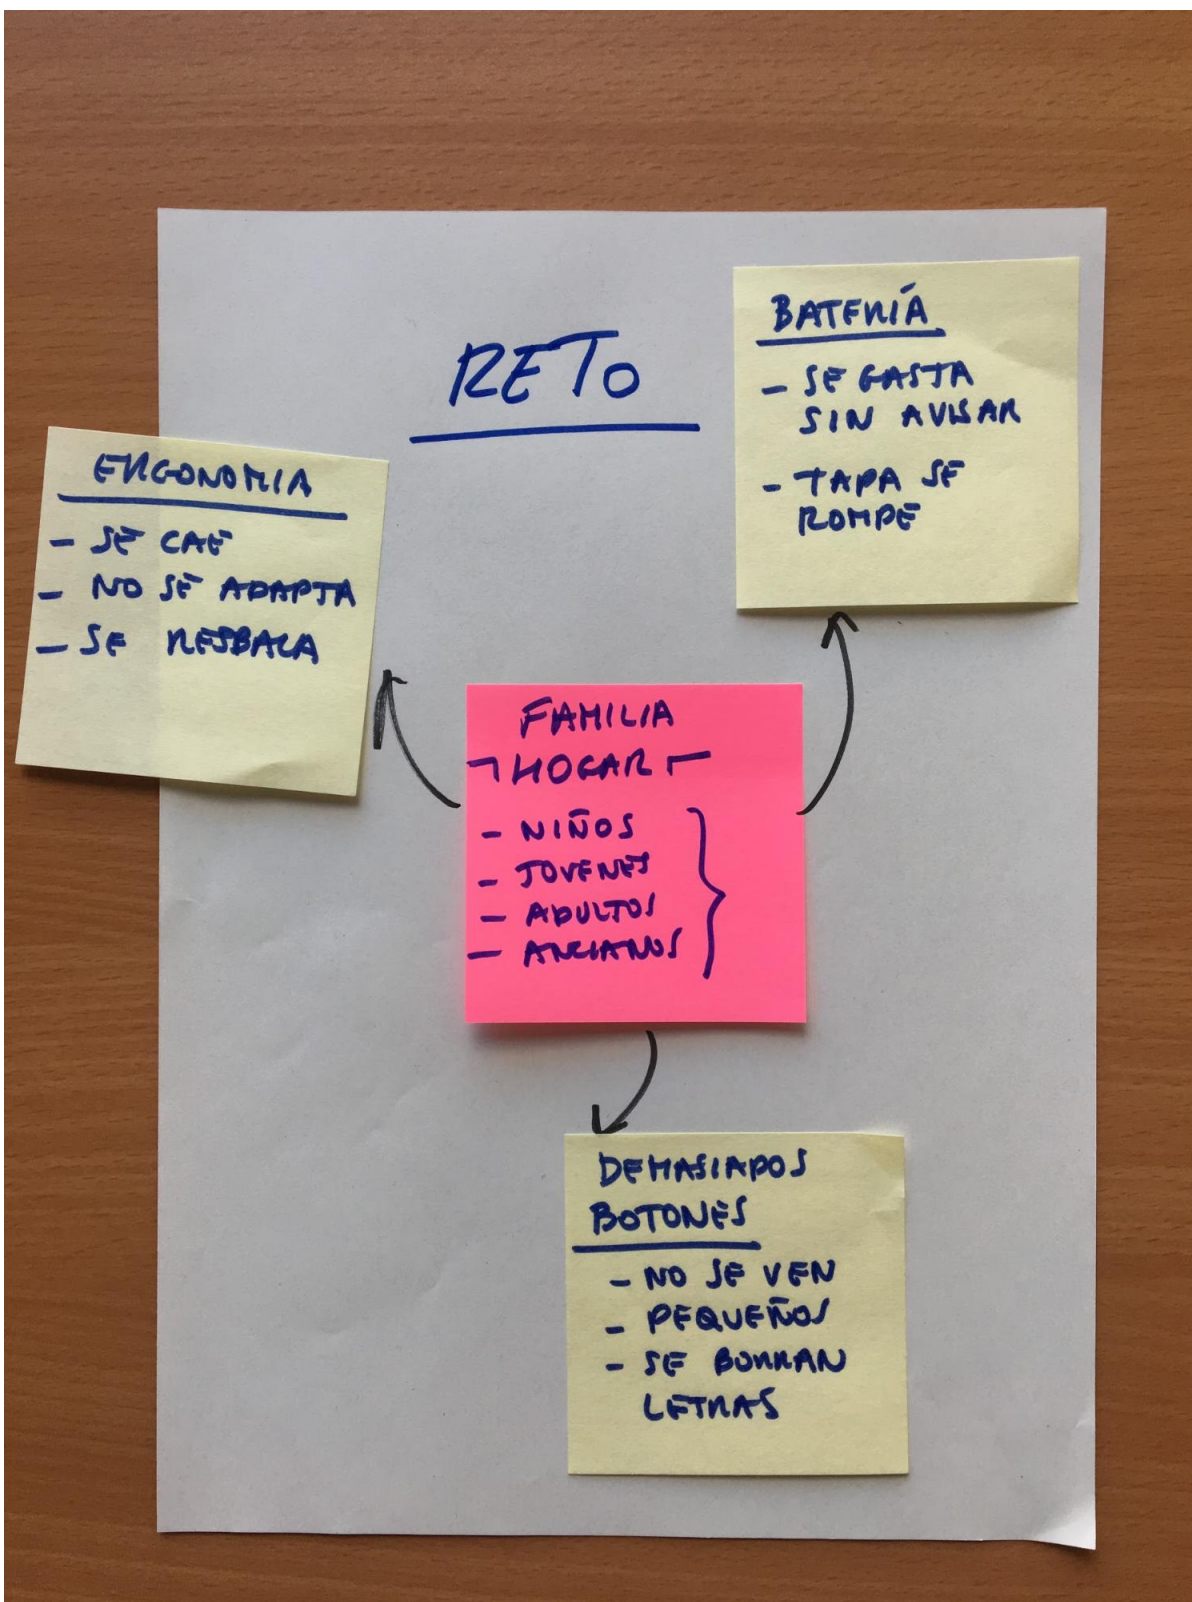 RETO
BATERÍA
- SE GASTA
SIN AVISAR
- TAPA SE
ROMPE
ERGONOMIA
- SE CAE
- NO SE ADAPTA
- SE RESBALA
FAMILIA
HOGAR
- NIÑOS
- JOVENES
- ADULTOS
- ANCIANOS
DEMASIADOS
BOTONES
- NO SE VEN
- PEQUEÑOS
- SE BORRAN
LETRAS